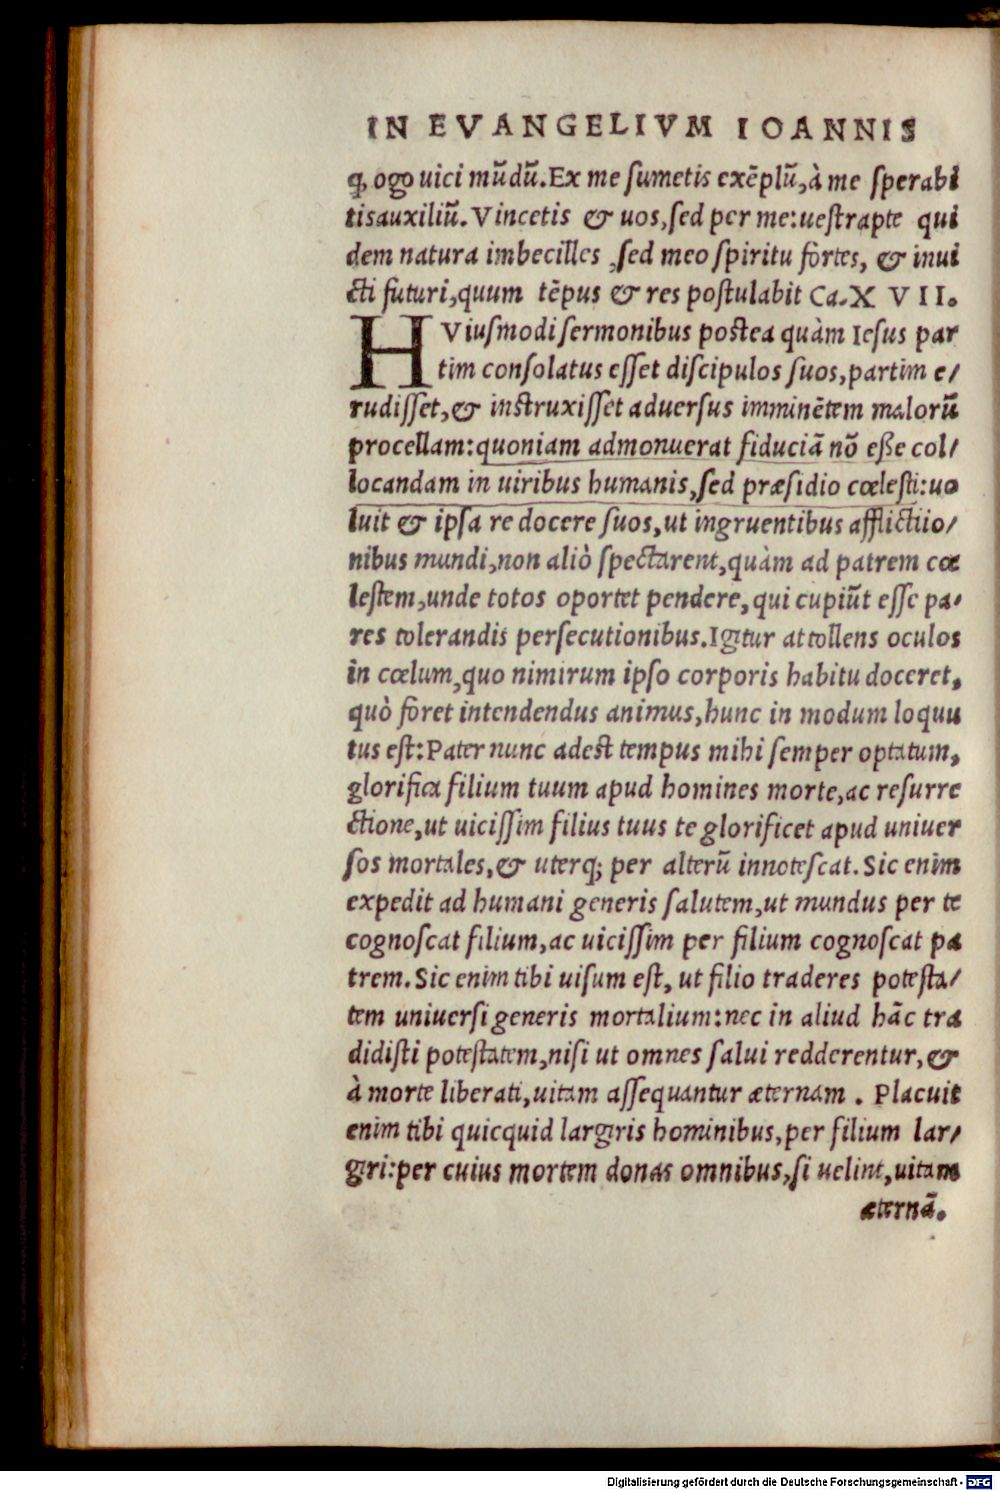 IN EVANGELIVM IOANNIS
ꝙ ogo uici mūdū. Ex me ſumetis exēplū, à me ſperabi
tis auxiliū. Vincetis & uos, ſed per me: ueſtrapte qui
dem natura imbecilles, ſed meo ſpiritu fortes, & inui
cti futuri, quum tēpus & res poſtulabit Ca. XVII.
HViuſmodi ſermonibus poſtea quàm Ieſus par
tim conſolatus eſſet diſcipulos ſuos, partim e/
rudiſſet, & inſtruxiſſet aduerſus imminētem malorū
procellam: quoniam admonuerat fiduciā nō eße col/
locandam in uiribus humanis, ſed præſidio cœleſti: uo
luit & ipſa re docere ſuos, ut ingruentibus afflictiio/
nibus mundi, non aliò ſpectarent, quàm ad patrem cœ
leſtem, unde totos oportet pendere, qui cupiūt eſſe pa/
res tolerandis perſecutionibus. Igitur attollens oculos
in cœlum, quo nimirum ipſo corporis habitu doceret,
quò foret intendendus animus, hunc in modum loquu
tus eſt: Pater nunc adest tempus mihi ſemper optatum,
glorifica filium tuum apud homines morte, ac reſurre
ctione, ut uiciſſim filius tuus te glorificet apud uniuer
ſos mortales, & uterq; per alterū innoteſcat. Sic enim
expedit ad humani generis ſalutem, ut mundus per te
cognoſcat filium, ac uiciſſim per filium cognoſcat pa
trem. Sic enim tibi uiſum eſt, ut filio traderes poteſta/
tem uniuerſi generis mortalium: nec in aliud hāc tra
didiſti poteſtatem, niſi ut omnes ſalui redderentur, &
à morte liberati, uitam aſſequantur æternam. Placuit
enim tibi quicquid largiris hominibus, per filium lar/
giri: per cuius mortem donas omnibus, ſi uelint, uitam
æternā.
Digitalisierung gefördert durch die Deutsche Forschungsgemeinschaft - DFG